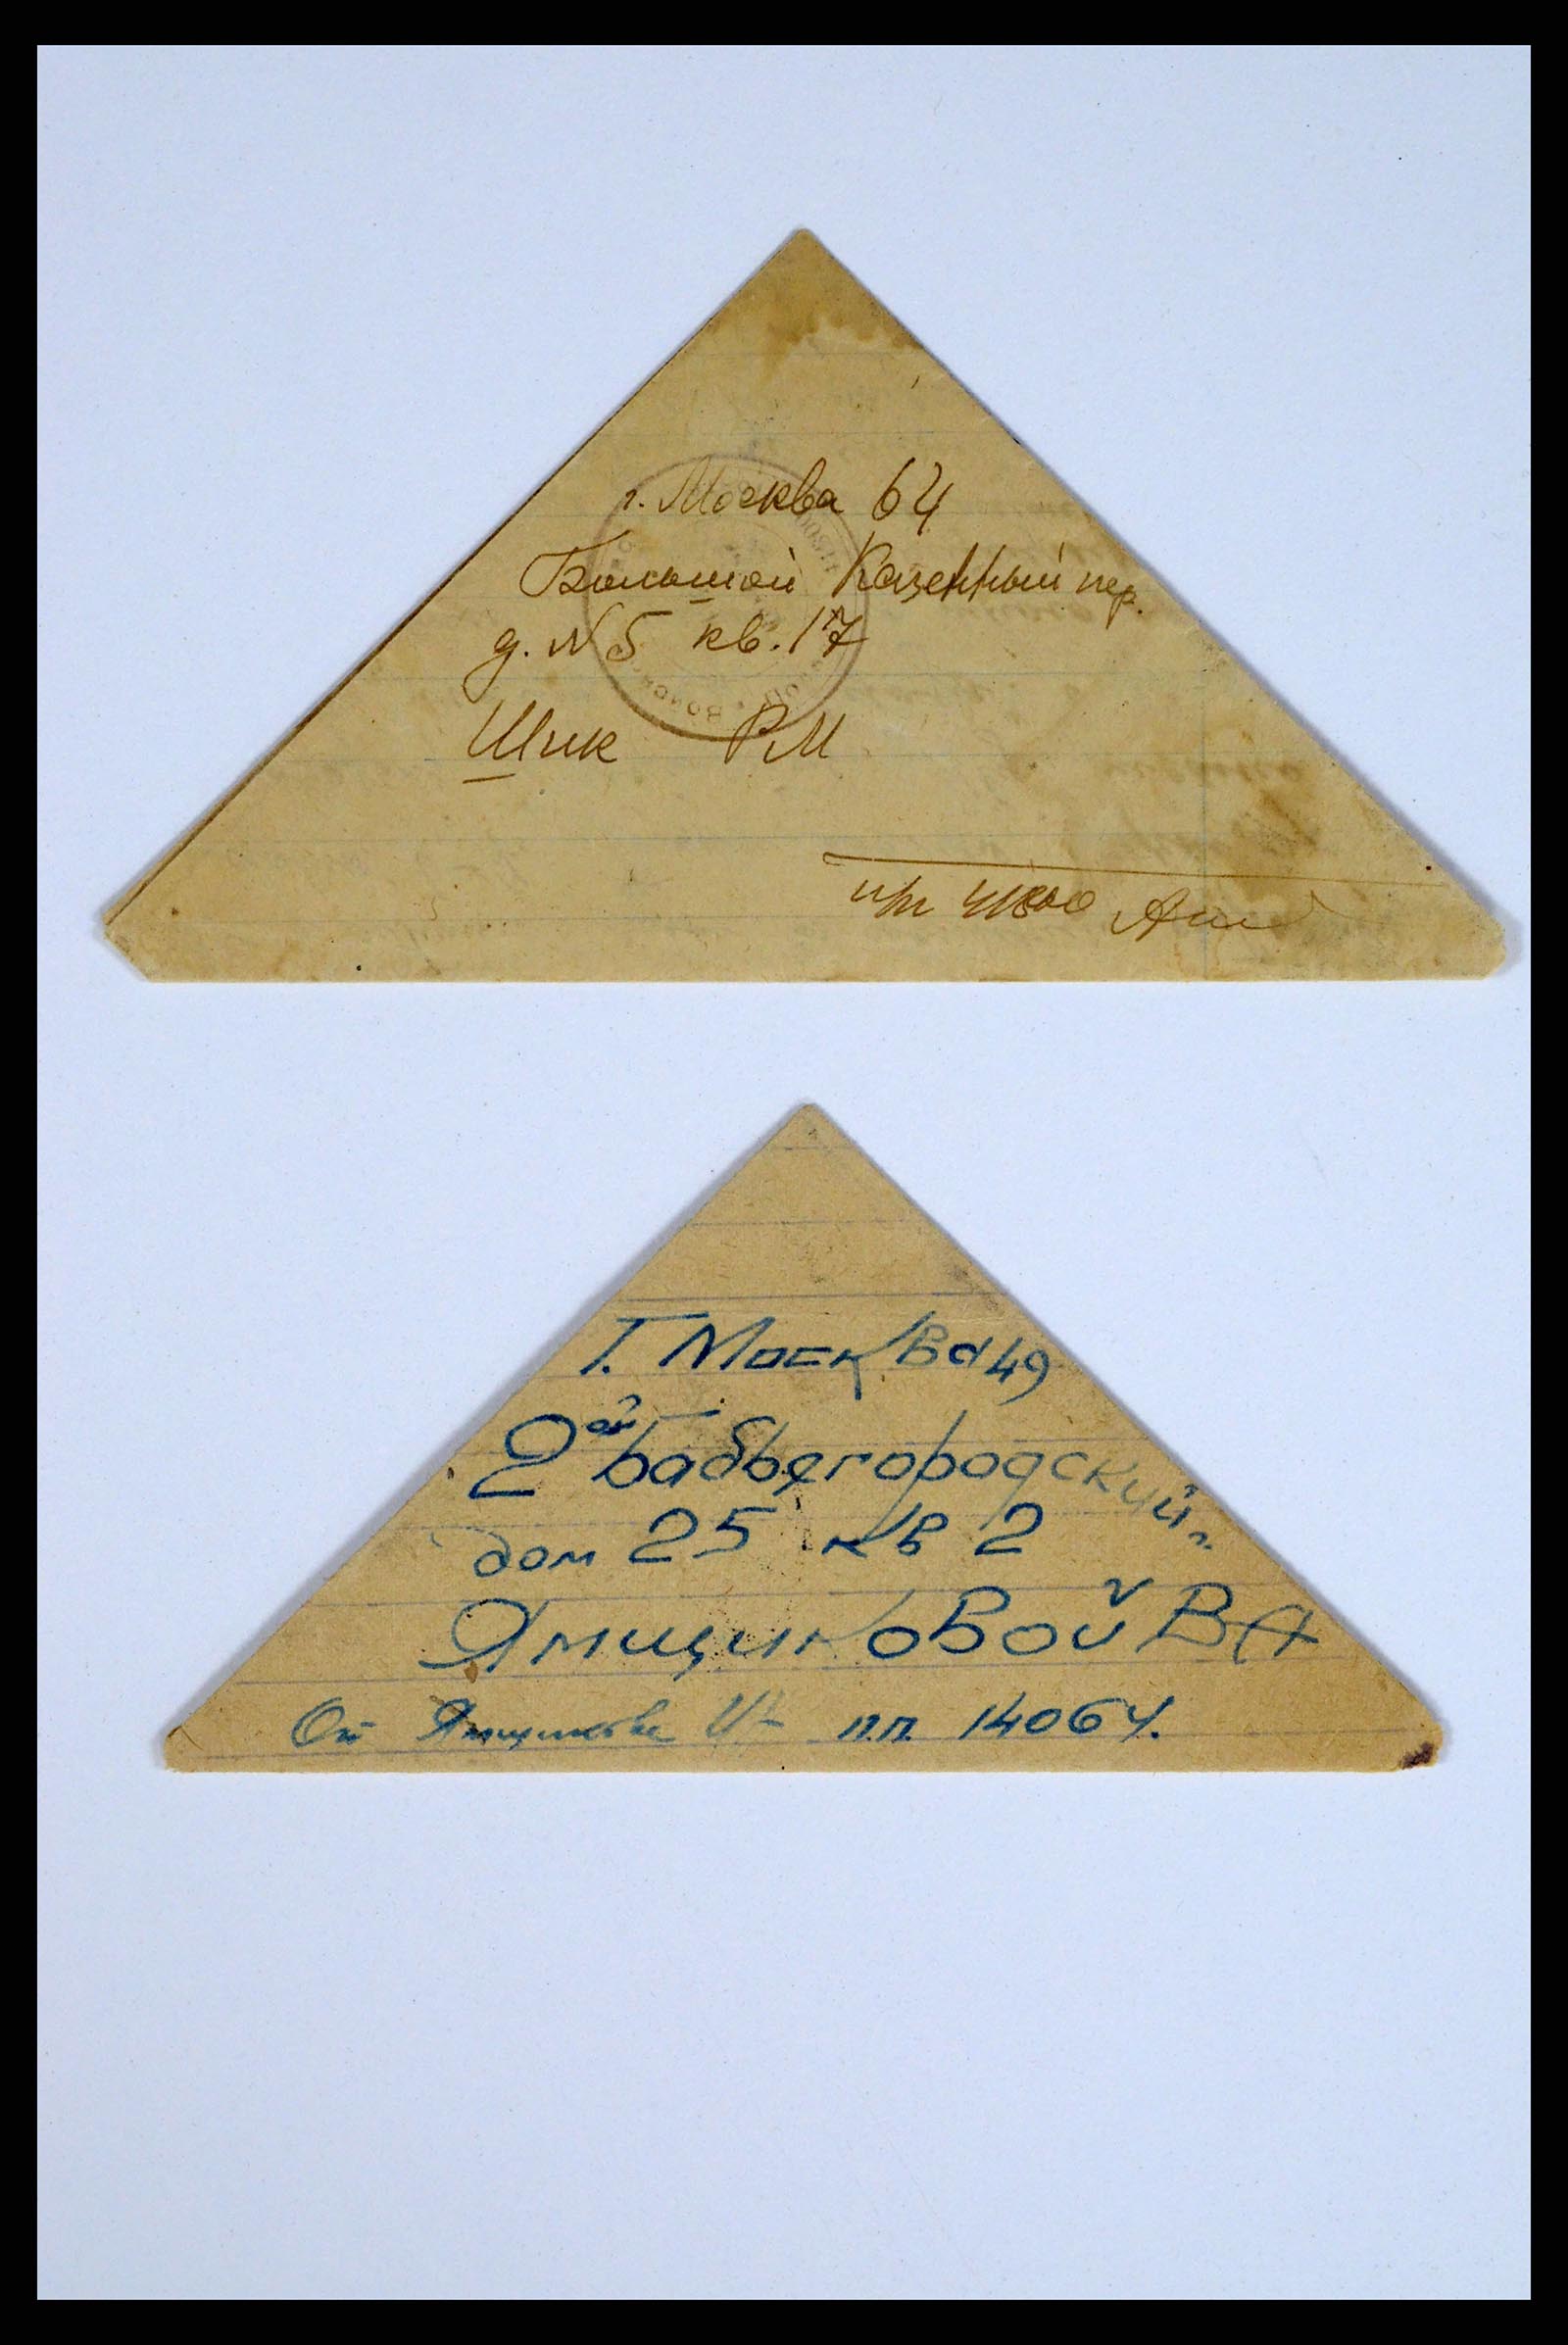 г. Москва 64
Большой Казенный пер.
д. N 5 кв. 17
Шик РМ
п/п
Г. Москва 49
2ой Бабьегородский п.
дом 25 кв 2
Ямщиковой ВА
От Ямщикова п.п. 14064.